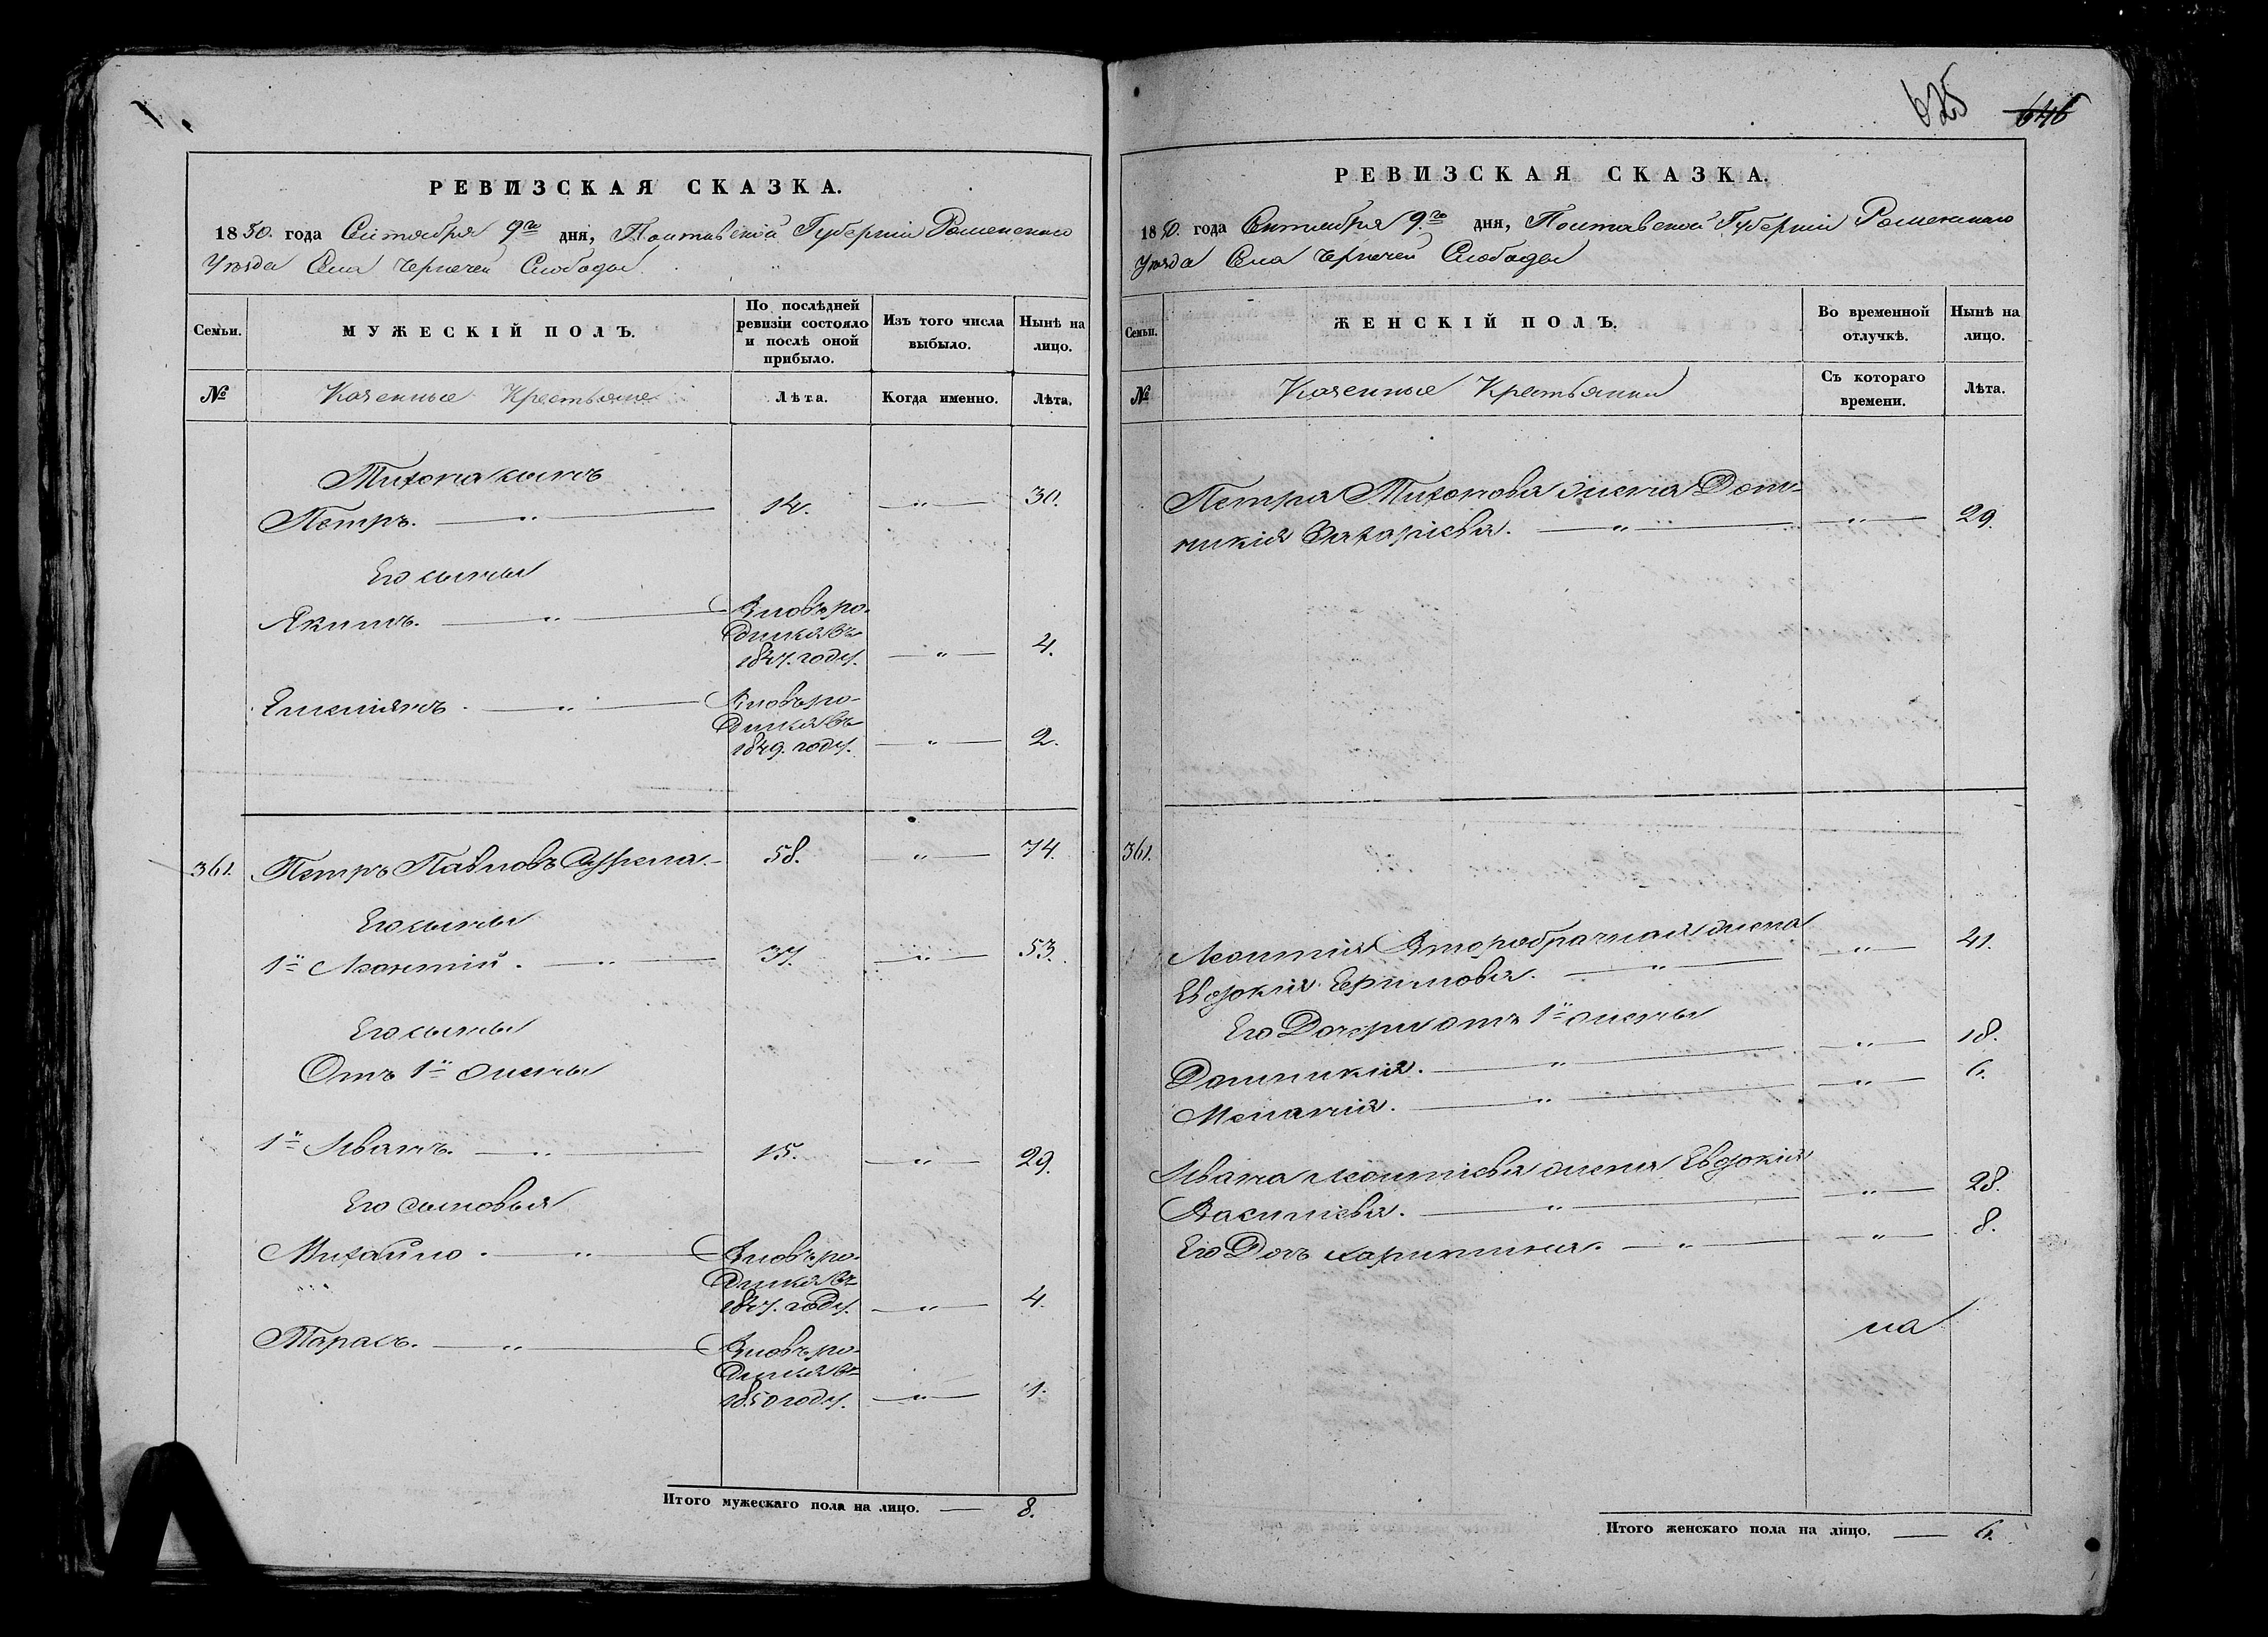 625 646
РЕВИЗСКАЯ СКАЗКА.
1850. года Сентября 9го дня, Полтавской Губерніи Роменскаго
Уѣзда Села Чернечей Слободы
Семьи.
МУЖЕСКІЙ ПОЛЪ.
По послѣдней
ревизіи состояло
и послѣ оной
прибыло.
Изъ того числа
выбыло.
Нынѣ на
лицо.
№
Казенные Крестьяне
Лѣта.
Когда именно.
Лѣта.
Тихона сынъ
Петръ. — " — 14. — " — 30.
Его сыны
Якимъ. — " — Вновь ро-
дился въ
1847. году. — " — 4.
Емеліянъ. — " — Вновь ро-
дился въ
1849. году. — " — 2.
361. Петръ Павловъ — 58. " — 74.
Его сыны
1й Леонтій. — " — 37. — " — 53.
Его сыны
Отъ 1й жены
1й Иванъ. — " — 15. — " — 29.
Его сыновья
Михайло. — " — Вновь ро-
дился въ
1847. году. — " — 4.
Тарасъ. — " — Вновь ро-
дился въ
1850 году. — " — 1.
Итого мужескаго пола на лицо. — 8.
РЕВИЗСКАЯ СКАЗКА.
1850. года Сентября 9.го дня, Полтавской Губерніи Роменскаго
Уѣзда Села Чернечей Слободы
Семьи.
ЖЕНСКІЙ ПОЛЪ.
Во временной
отлучкѣ.
Нынѣ на
лицо.
№
Казенные Крестьянки
Съ котораго
времени.
Лѣта.
Петра Тихонова жена Дом-
никія Захаріева. — " — " — 29.
361.
Леонтія Второбрачная жена
Евдокія — " — " — 41.
Его Дочери отъ 1й жены
Домникія. — " — " — 18.
Меланія. — " — " — 6.
Ивана Леонтіева жена Евдокія
Василіева. — " — " — 28.
Его Дочь — " — " — 8.
Итого женскаго пола на лицо. — 6.